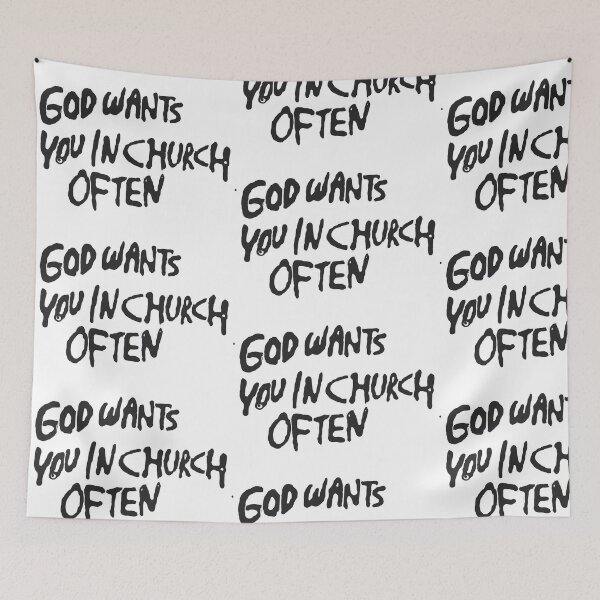 GOD WANTS
YOU IN CHURCH
OFTEN
GOD WANTS
YOU IN CHURCH
OFTEN
GOD WANTS
YOU IN CHURCH
OFTEN
YOU IN CHURCH
OFTEN
GOD WANTS
YOU IN CHURCH
OFTEN
GOD WANTS
YOU IN CHURCH
OFTEN
GOD WANTS
GOD WANT
YOU IN CH
OFTEN
GOD WANT
YOU IN CH
OFTEN
GOD WANT
YOU IN CH
OFTEN